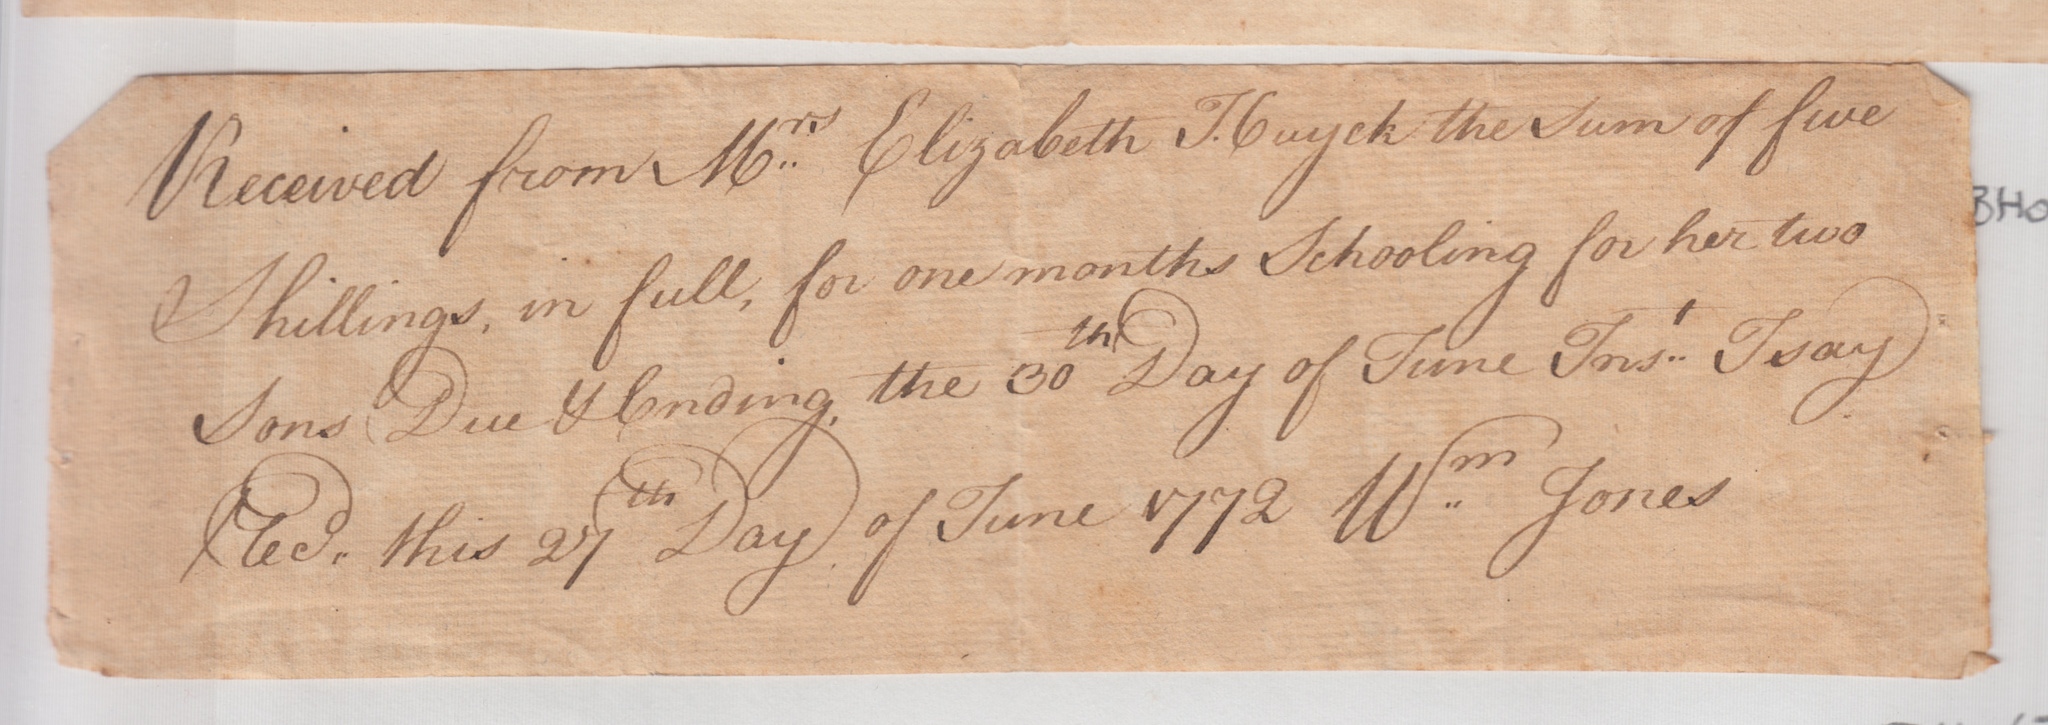 Received from Mrs Elizabeth T. Cuyck the Sum of five
Shillings, in full, for one months Schooling for her two
Sons Due & Ending, the 30th Day of June Inst. I say
Recd. this 27th Day of June 1772 Wm Jones